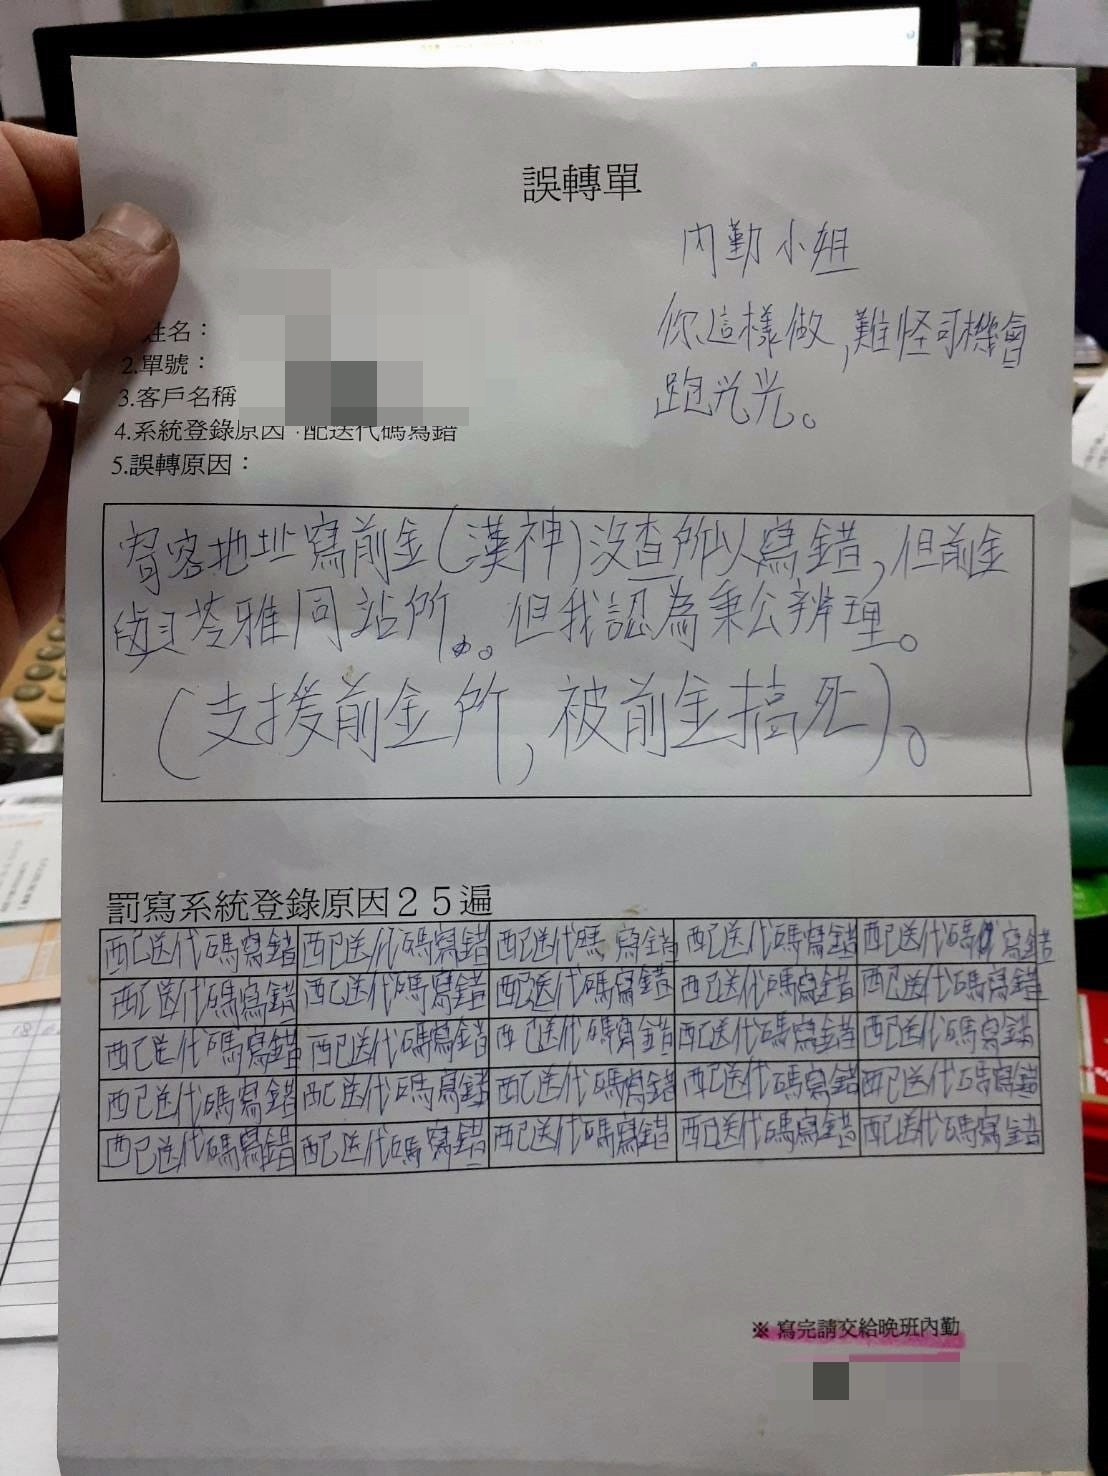 誤轉單
內勤小姐
你這樣做,難怪司機會
跑光光。
姓名：
2.單號：
3.客戶名稱
4.系統登錄原因：配送代碼寫錯
5.誤轉原因：
寄客地址寫前金(漢神)沒查所以寫錯,但前金
與苓雅同站所。但我認為秉公辨理。
(支援前金所,被前金搞死)。
罰寫系統登錄原因２５遍
配送代碼寫錯 配送代碼寫錯 配送代碼寫錯 配送代碼寫錯 配送代碼寫錯
配送代碼寫錯 配送代碼寫錯 配送代碼寫錯 配送代碼寫錯 配送代碼寫錯
配送代碼寫錯 配送代碼寫錯 配送代碼寫錯 配送代碼寫錯 配送代碼寫錯
配送代碼寫錯 配送代碼寫錯 配送代碼寫錯 配送代碼寫錯 配送代碼寫錯
配送代碼寫錯 配送代碼寫錯 配送代碼寫錯 配送代碼寫錯 配送代碼寫錯
※ 寫完請交給晚班內勤